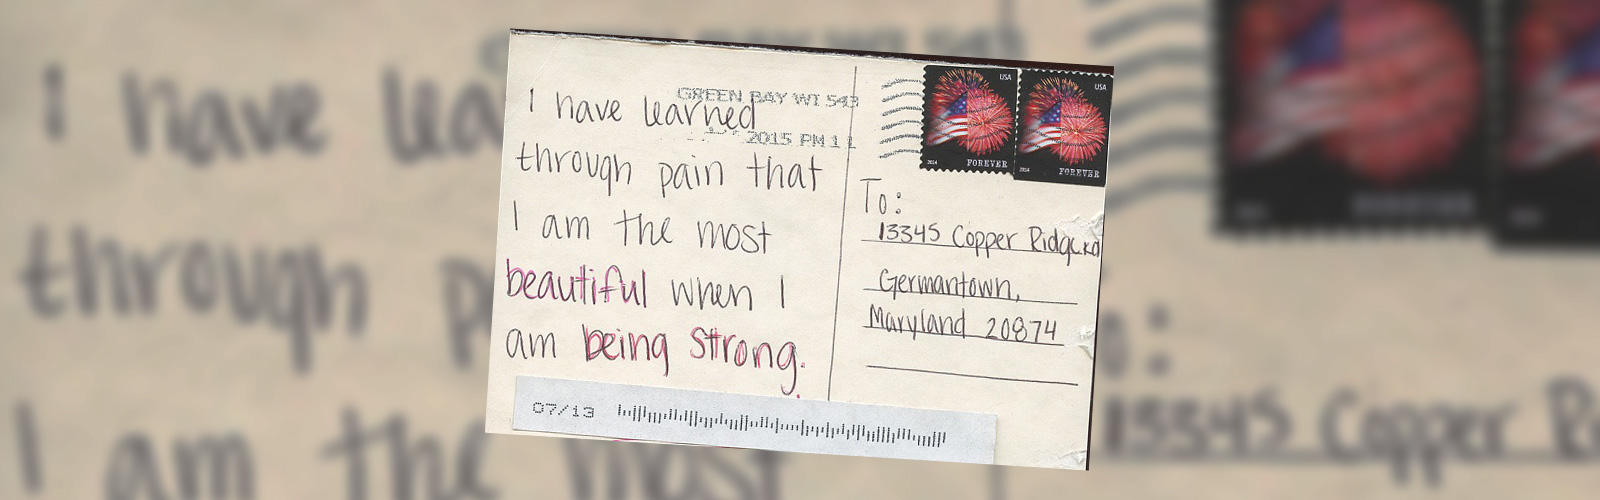 I have learned
through pain that
I am the most
beautiful when I
am being strong.
GREEN BAY WI 543
2015 PM 1 L
USA
2014 FOREVER
USA
2014 FOREVER
To:
13345 Copper Ridge Rd
Germantown,
Maryland 20874
07/13